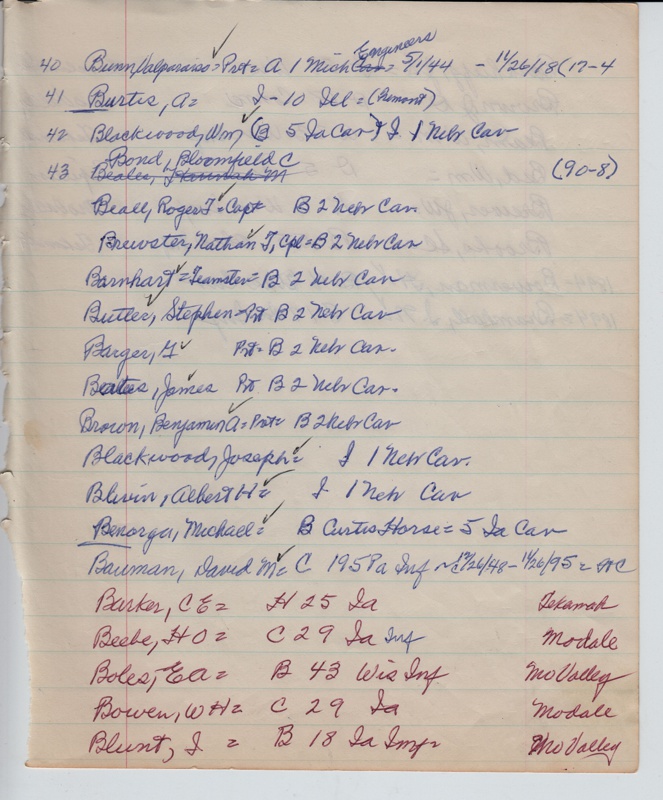 Engineers
40 Bunn, Valparaiso = Prt = A 1 Mich Cav = 5/1/44 - 11/26/18 (17-4
41 Burtis, A = I - 10 Ill = (Fremont)
42 Blackwood, Wm (B 5 Ia Cav) & I 1 Nebr Cav
Bond, Bloomfield C
43 (90-8)
Beall, Roger T = Capt B 2 Nebr Cav.
Brewster, Nathan T, Cpl = B 2 Nebr Cav
Barnhart = Teamster = B 2 Nebr Cav
Butler, Stephen = Prt B 2 Nebr Cav
Barger, Prt = B 2 Nebr Cav.
Beates, James Prt B 2 Nebr Cav.
Brown, Benjamin A = Prt = B 2 Nebr Cav
Blackwood, Joseph = I 1 Nebr Cav.
Blivin, Albert H = I 1 Nebr Cav
Benorga, Michael = B Curtis Horse = 5 Ia Cav
Bauman, David M = C 195 Pa Inf 11/26/95 =
Barker, C E = H 25 Ia Tekamah
Beebe, H O = C 29 Ia Inf Modale
Boles, E A = B 43 Wis Inf Mo Valley
Bowen, W H = C 29 Ia Modale
Blunt, J = B 18 Ia Mo Valley